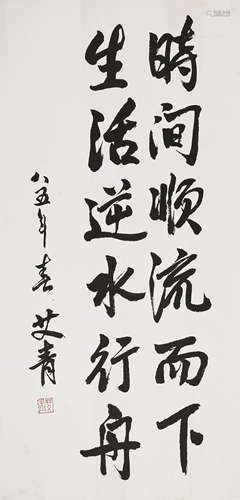 時间顺流而下
生活逆水行舟
八五年春 艾青